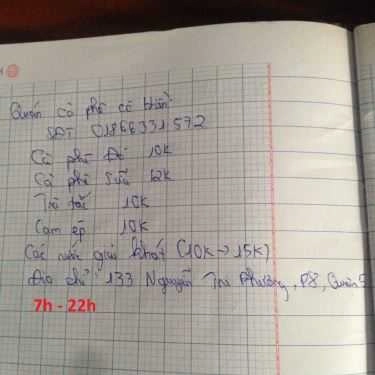 Quán cà phê cô
SĐT 01866331572
Cà phê Đá 10K
Cà phê Sữa 12K
Trà tắc 10K
Cam ép 10K
Các nước giải khát (10K → 15K)
Địa chỉ: 133 Nguyễn Tri Phương, P8, Quận 5
7h - 22h